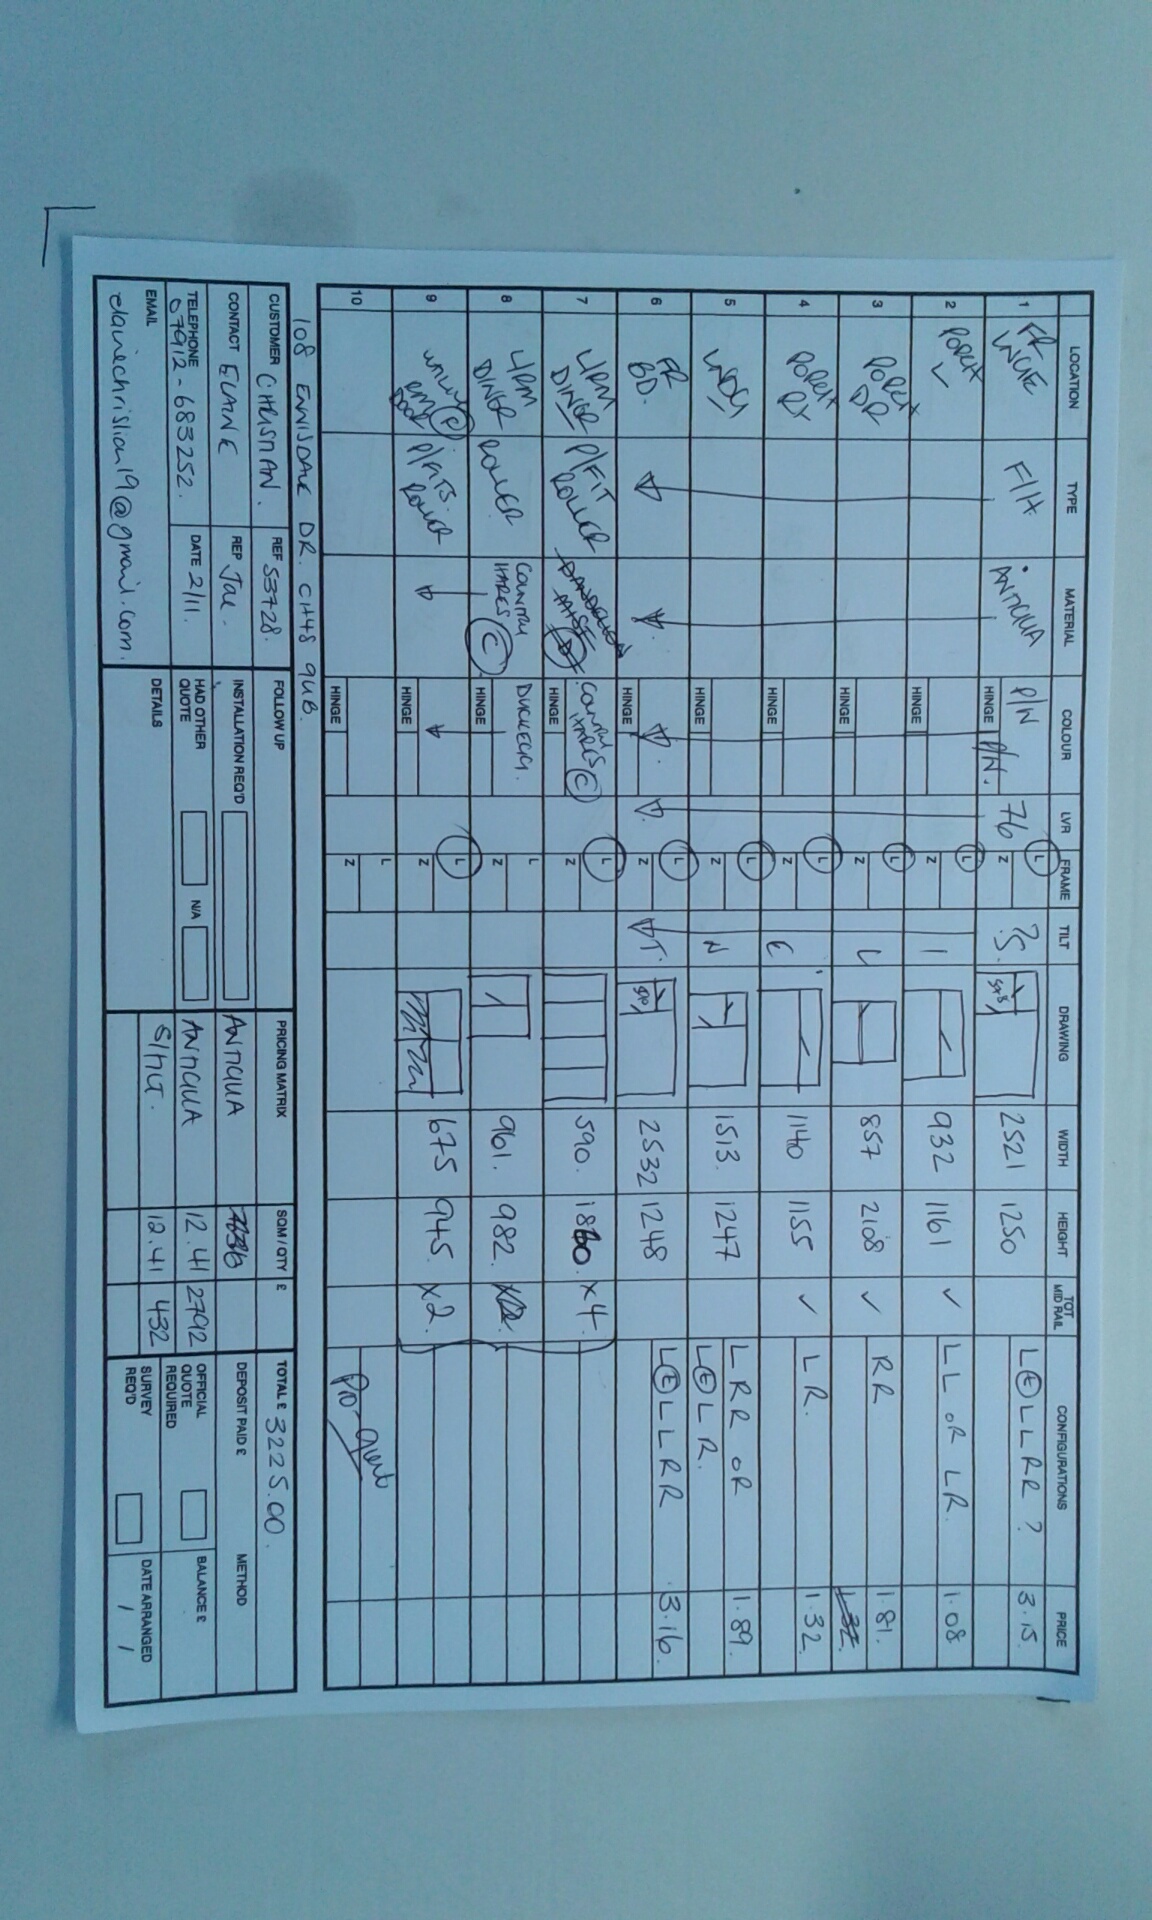 LOCATION TYPE MATERIAL COLOUR LVR FRAME TILT DRAWING WIDTH HEIGHT TOT MID RAIL CONFIGURATIONS PRICE
1 FR F/H ANTIQUA P/N HINGE P/N. 76 L Z ?S. 2521 1250 L T L L R R ? 3.15
2 HINGE L Z I 932 1161 ✓ L L OR L R. 1.08
3 DR HINGE L Z L 857 2108 ✓ R R 1.81. 1.32
4 HINGE L Z E 1140 1155 ✓ L R. 1.32
5 HINGE L Z N 1513. 1247 L R R OR L T L R. 1.89
6 FR BD. HINGE L Z T. 2532 1248 L T L L R R 3.16
7 L/RM DINER P/FIT ROLLER COUNTRY HARES C HINGE L Z 590. 1860. x4
8 L/RM DINER ROLLER COUNTRY HARES C DUCKEGG. HINGE L Z 961. 982.
9 UTILITY RM DOOR P P/FITS. ROLLER HINGE L Z 675 945. x2.
10 HINGE L Z
108 ENNISDALE DR. CH48 9UB.
CUSTOMER CHRISTIAN. REF 53728. FOLLOW UP PRICING MATRIX SQM / QTY £ TOTAL £ 3225.00.
CONTACT ELAINE REP Jae. INSTALLATION REQ'D ANTIQUA DEPOSIT PAID £ METHOD
TELEPHONE 07912-683252. DATE 2/11. HAD OTHER QUOTE N/A ANTIQUA 12.41 2792 OFFICIAL QUOTE REQUIRED BALANCE £
EMAIL elainechristian19@gmail.com. DETAILS S/TILT. 12.41 432 SURVEY REQ'D DATE ARRANGED / /